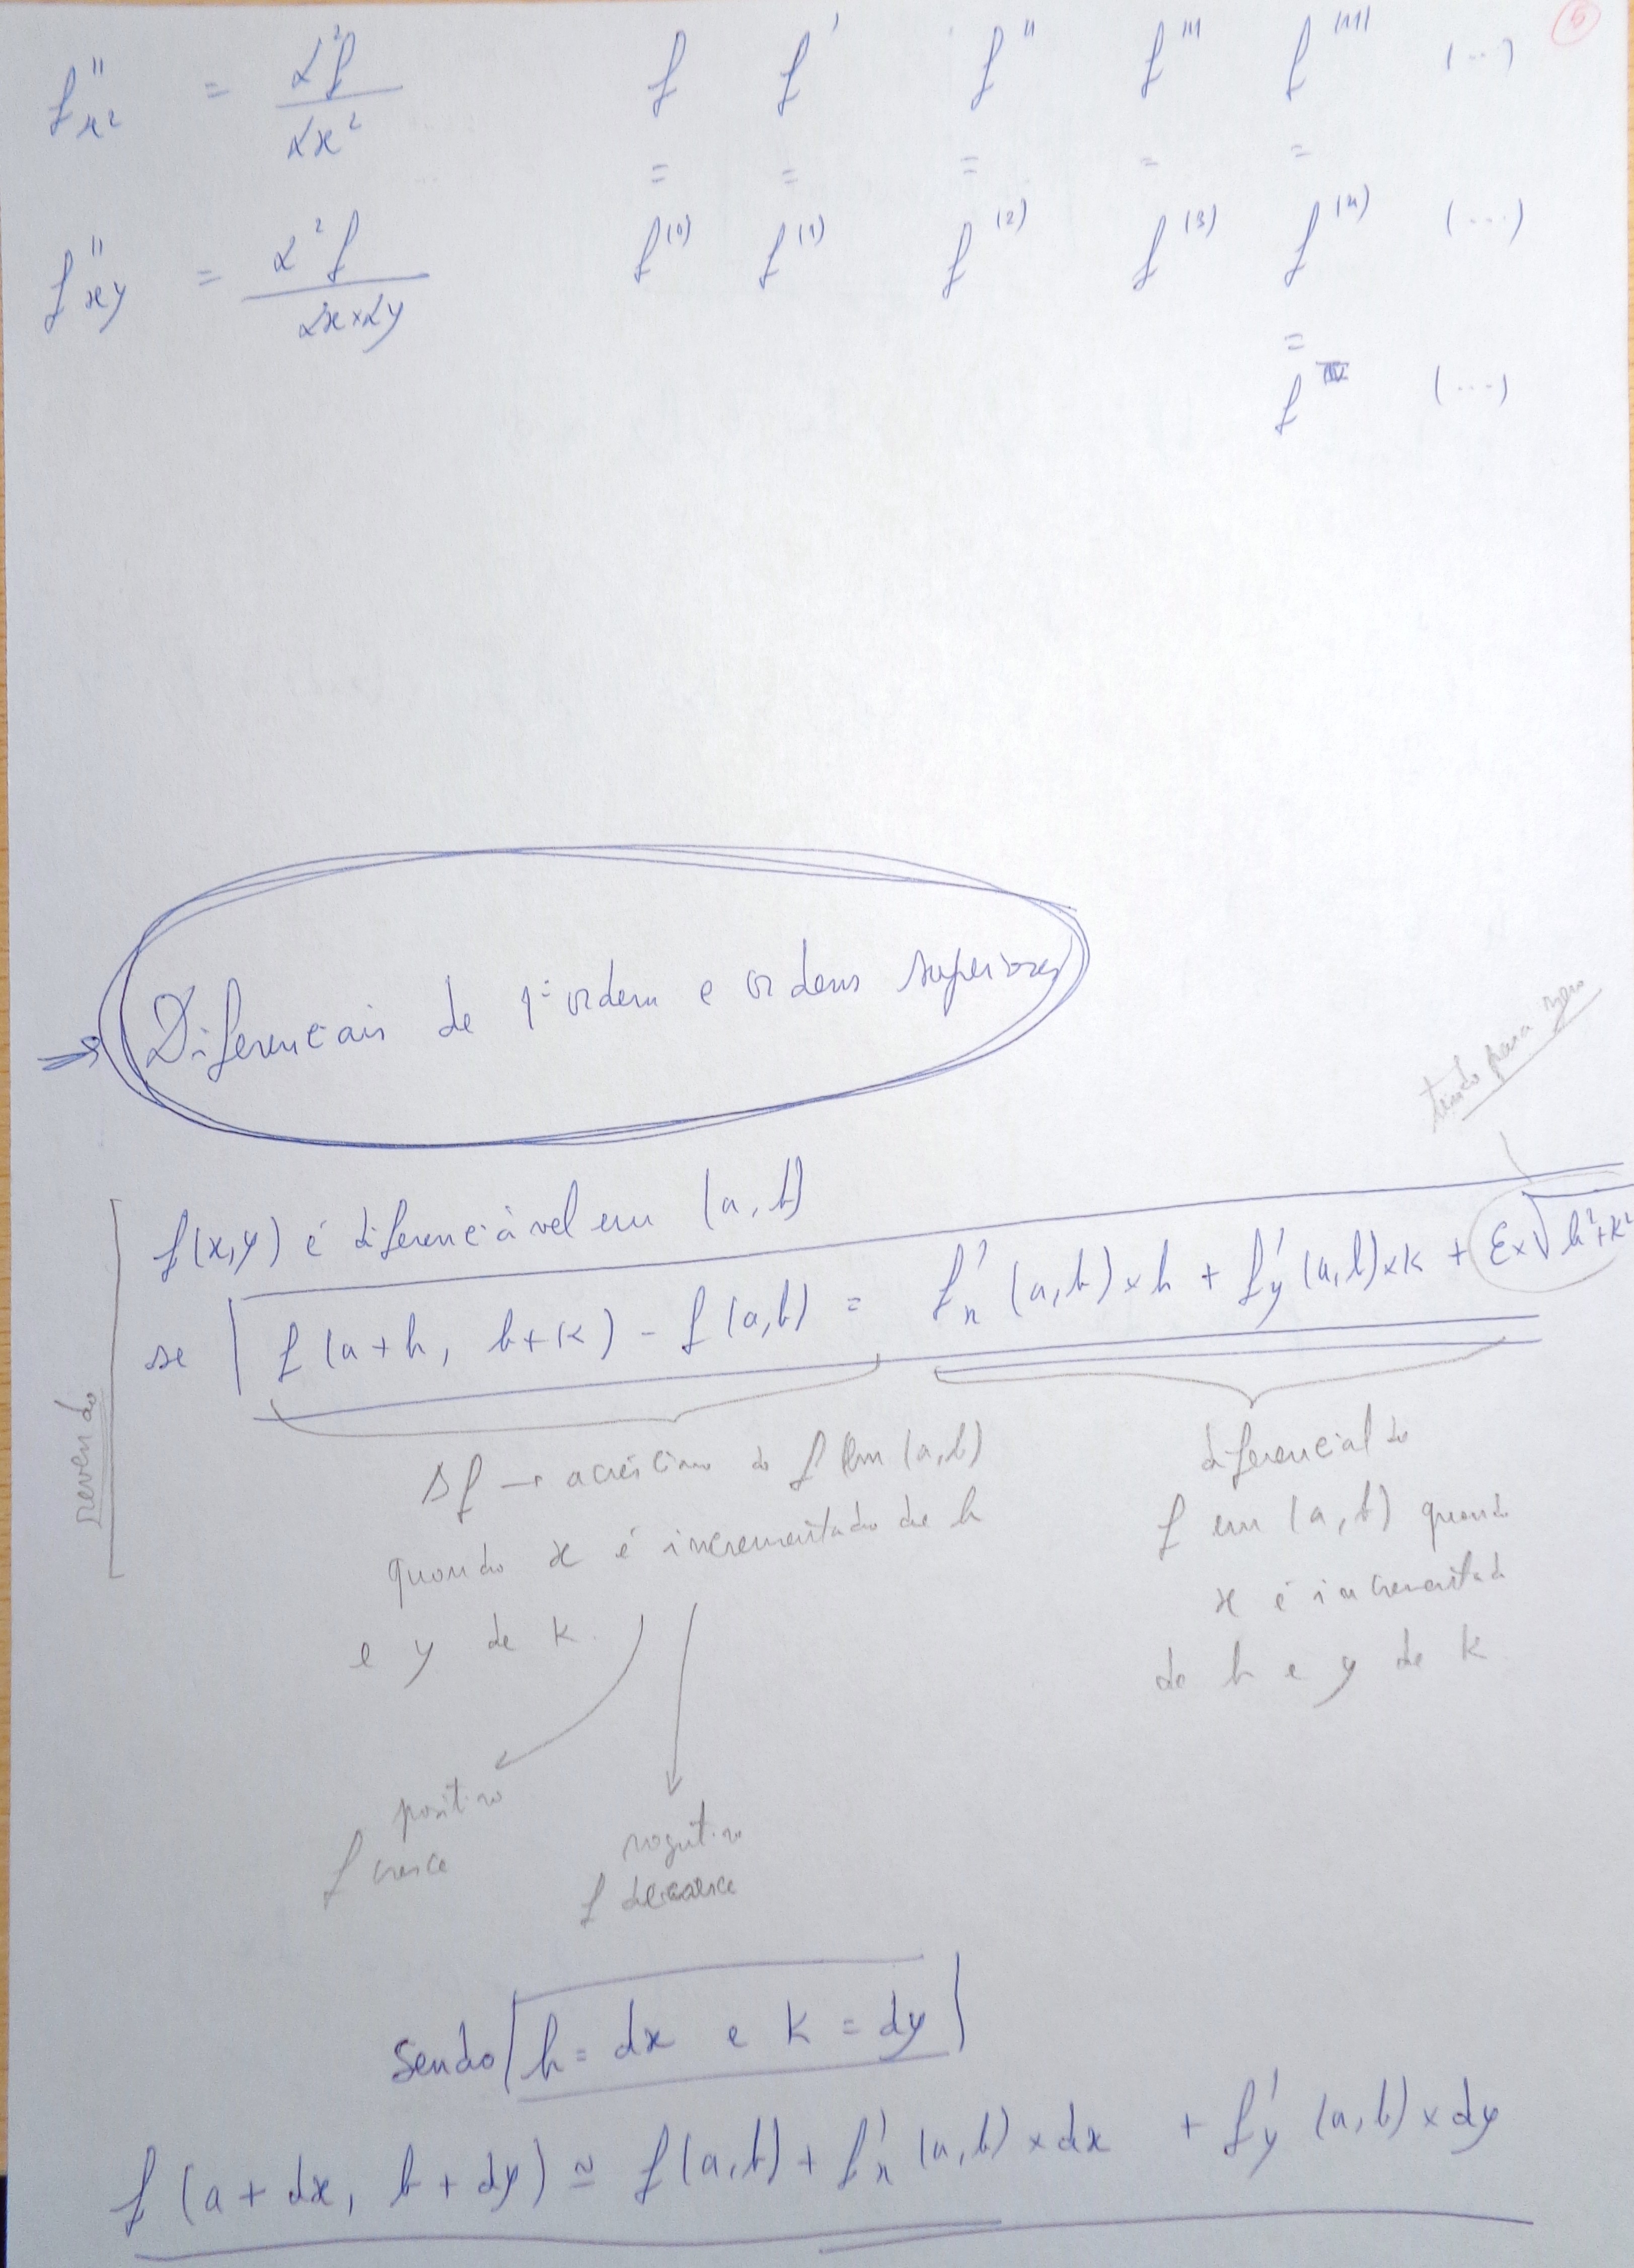 5
f''x² = ∂²f / ∂x²
f f' f'' f''' f'''' (...)
= = = = =
f''xy = ∂²f / ∂x×∂y
f⁽⁰⁾ f⁽¹⁾ f⁽²⁾ f⁽³⁾ f⁽⁴⁾ (...)
=
f^IV (...)
Diferenciais de 1ª ordem e ordens superiores
tendo para zero
f(x,y) é diferenciável em (a,b)
se f(a+h, b+k) - f(a,b) = f'x(a,b)×h + f'y(a,b)×k + ε×√h²+k²
revendo
Δf → acréscimo de f em (a,b)
quando x é incrementado de h
e y de k.
diferencial de
f em (a,b) quando
x é incrementado
de h e y de k
positivo
f cresce
negativo
f decresce
Sendo h = dx e k = dy
f(a+dx, b+dy) ≃ f(a,b) + f'x(a,b)×dx + f'y(a,b)×dy